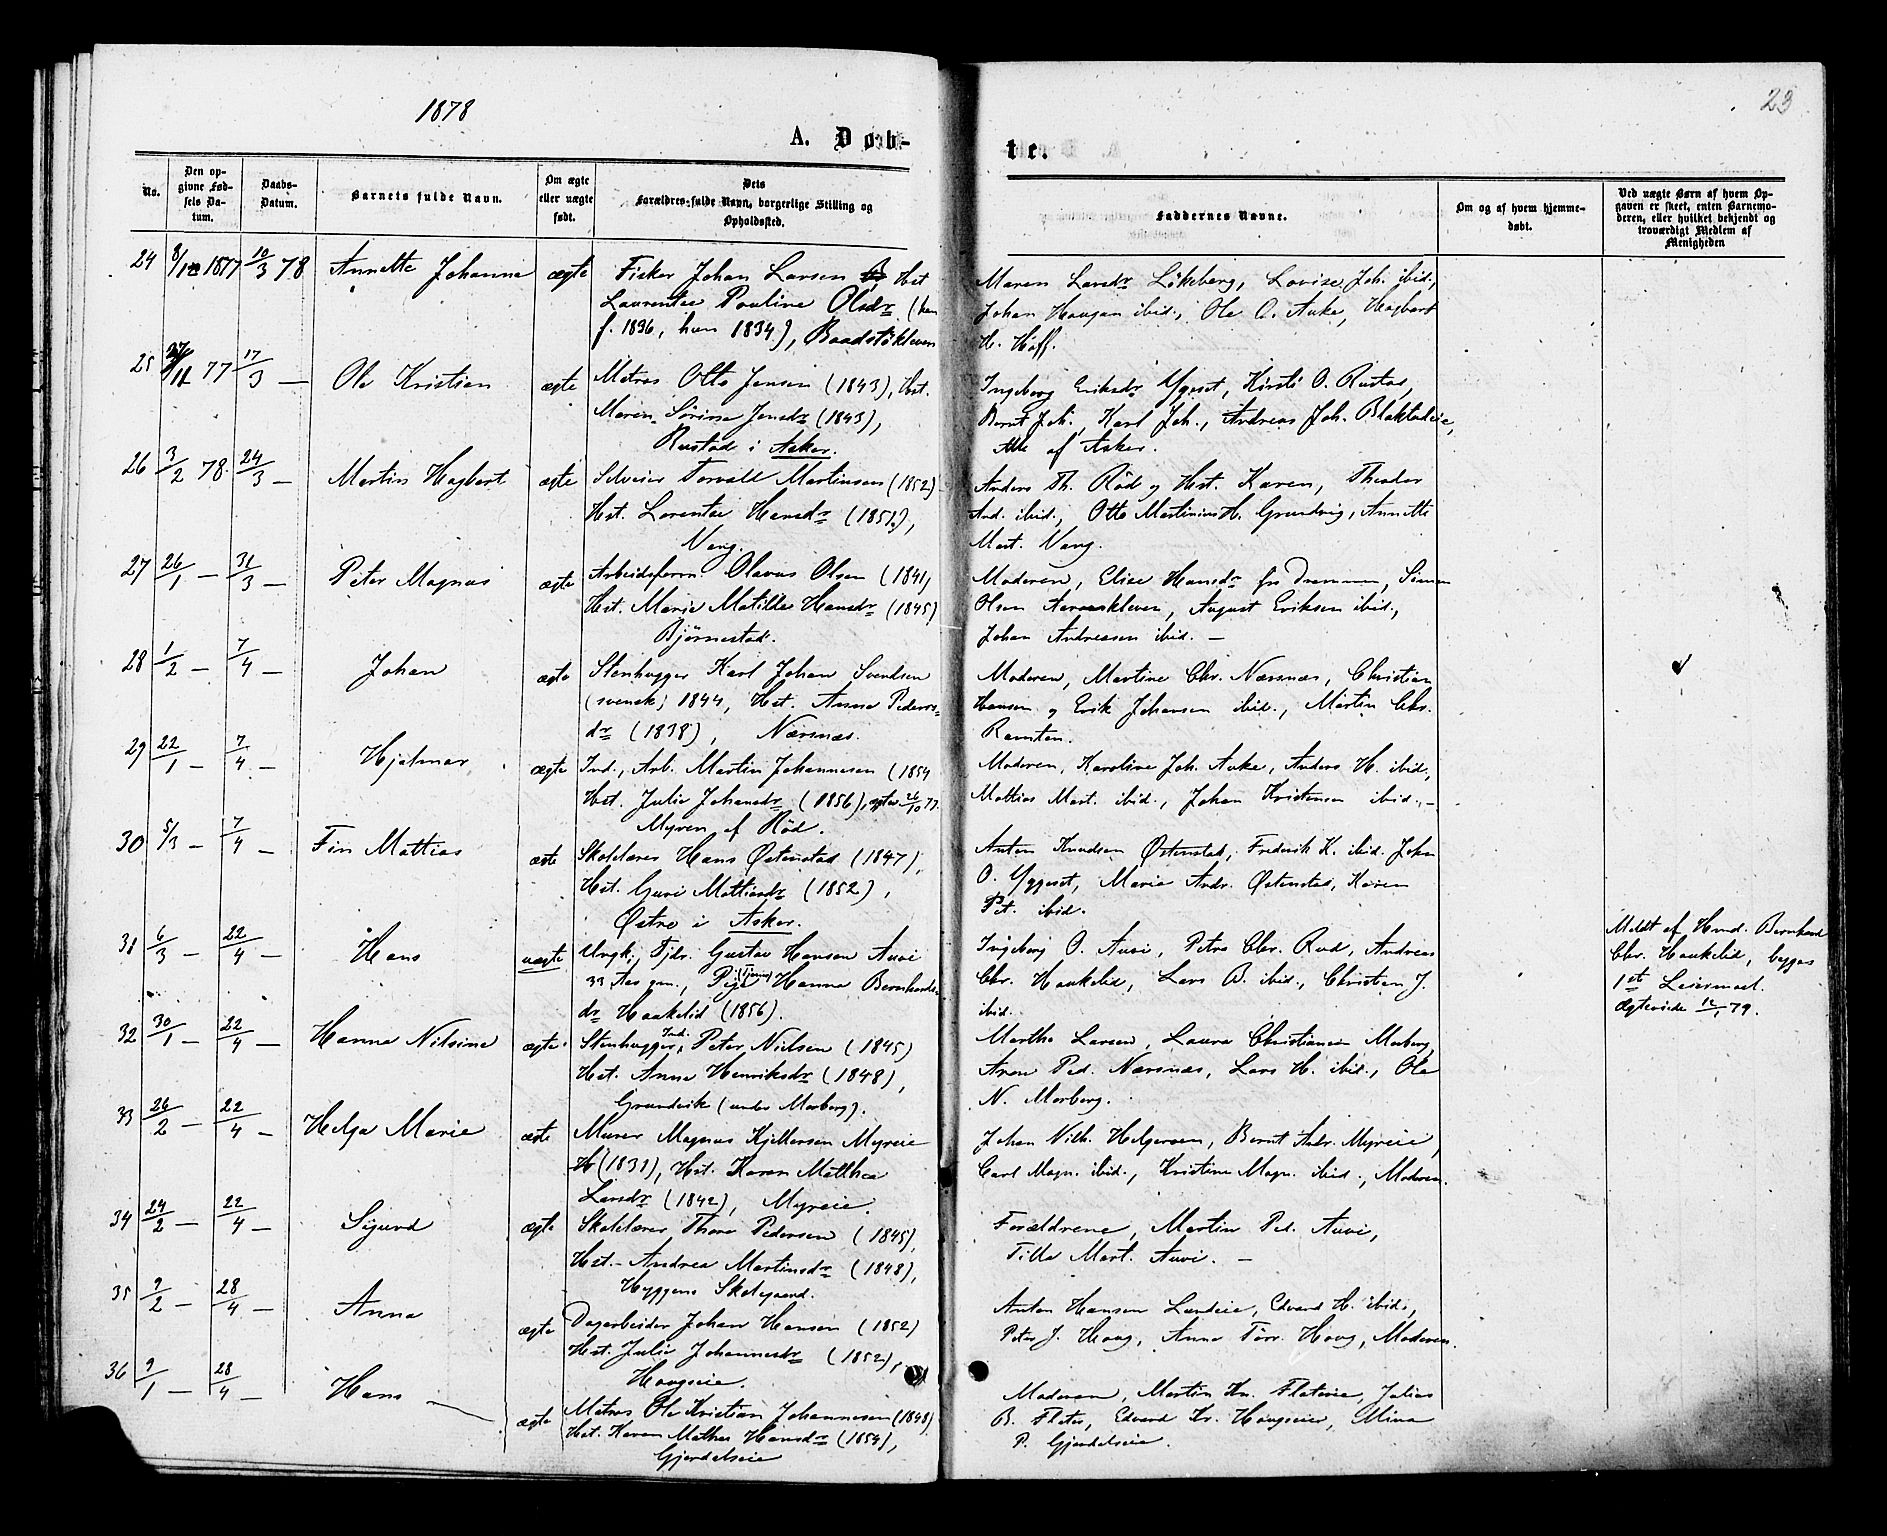 1878
23
A. Døb-
te.
No.
Den op-
givne Fød-
sels Da-
tum.
Daabs-
Datum.
Barnets fulde Navn.
Om ægte
eller uægte
født.
Dets
Forældres fulde Navn, borgerlige Stilling og
Opholdssted.
Faddernes Navne.
Om og af hvem hjemme-
døbt.
Ved uægte Børn af hvem Op-
gaven er skeet, enten Barnemo-
deren, eller hvilket bekjendt og
troværdigt Medlem af
Menigheden
24 8/12 1877 10/3 78 Annette Johanne ægte Fisker Johan Larsen Hst
Laurentze Pouline Olsdr (han
f. 1836, hun 1834), Baadstökleven
Maren Larsdr Lökeberg, Lovise Joh. ibid.,
Johan Haugan ibid., Ole O. Auke, Hagbart
H. Hoff.
25 27/11 77 17/3 — Ole Kristian ægte Matros Otto Jensen (1843), Hst.
Maren Sörine Jensdr (1843),
Rustad i Asker.
Ingeborg Eriksdr Yggeset, Kirsti O. Rustad,
Bernt Joh., Karl Joh., Andreas Joh.
Alle af Asker.
26 3/2 78 24/3 — Martin Hagbart ægte Selveier Torvald Martinsen (1852)
Hst. Lorentze Hansdr (1851),
Vang.
Anders Th. Röd og Hst. Karen, Theodor
And. ibid., Otto Martinius H. Grundvig, Annette
Mart. Vang.
27 26/1 — 31/3 — Peter Magnus ægte Arbeidsform. Olavus Olsen (1841,
Hst. Marie Matilde Hansdr (1845)
Bjørnestad.
Moderen, Elise Hansdr fra Drammen, Simen
Olsen Aaroskleven, August Eriksen ibid.,
Johan Andreasen ibid. —
28 1/2 — 7/4 — Johan ægte Stenhugger Karl Johan Svendsen
(svensk) 1844, Hst. Anna Peders-
dr (1838), Nærsnæs.
Moderen, Martine Chr. Nærsnæs, Christian
Hansen og Erik Johansen ibid., Martin Chr.
Ramton.
29 22/1 — 7/4 — Hjalmar ægte Ind., Arb. Martin Johannesen (1854
Hst. Julie Johansdr (1856), 26/10 77.
Myren af Röd.
Moderen, Karoline Joh. Auke, Anders H. ibid.,
Mathias Mart. ibid., Johan Kristensen ibid. —
30 5/3 — 7/4 — Fin Mattias ægte Skolelærer Hans Østenstad (1847),
Hst. Guri Mattiasdr (1852),
Østre i Asker.
Anton Knudsen Østenstad, Frederik K. ibid. John
O. Yggeset, Maria Andr. Østenstad, Karen
Pet. ibid.
31 6/3 — 22/4 — Hans uægte Ungk., Tjdr. Gustav Hansen Auvi
33 Aar gm., Pige (Tjener) Hanna Bernhards-
dr Haakelid (1856).
Ingeborg O. Auvi, Petra Chr. Rud, Andreas
Chr. Haakelid, Lars B. ibid., Christian J.
ibid.
Meldt af Hmd. Bernhard
Chr. Haakelid, begges
1st Leiermaal.
Ægteviede 79.
32 30/1 — 22/4 — Hanna Nilsine ægte Stenhugger, Ind. Peter Nielsen (1845)
Hst. Anna Henriksdr (1848),
Grundvik (under Morberg).
Marthe Larsen, Laura Christiansen Morberg,
Aren Ped. Nærsnæs, Lars H. ibid., Ole
N. Morberg.
33 26/2 — 22/4 — Helga Marie ægte Murer Magnus Kjellersen Myreie
(1831), Hst. Karen Mathea
Larsdr (1842), Myreie.
Johan Vilh. Helgersen, Bernt Andr. Myreie,
Carl Magn. ibid., Kristine Magn. ibid., Moderen.
34 24/2 — 22/4 — Sigurd ægte Skolelærer Thore Pedersen (1845),
Hst. Andrea Martinsdr (1848),
Hyggens Skolegaard.
Forældrene, Martin Ped. Auvi,
Tilla Mart. Auvi. —
35 9/2 — 28/4 — Anna ægte Dagarbeider Johan Hansen (1852)
Hst. Julie Johannesdr (1852),
Haugseie.
Anton Hansen Lundeie, Edvard H. ibid.,
Peter J. Haug, Anne Torr. Haug, Moderen.
36 9/1 — 28/4 — Hans ægte Matros Ole Kristian Johannesen (1848)
Hst. Karen Mathea Hansdr (1854),
Gjerdalseie
Moderen, Martin Kr. Flateie, Julius
B. Flater, Edvard Kr. Haugseie, Mina
P. Gjerdalseie.